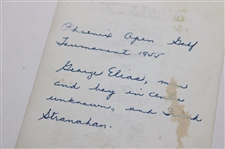 Phoenix Open Golf
Tournament 1955
George Elias, man
and boy in center
unknown, and
Stranahan.